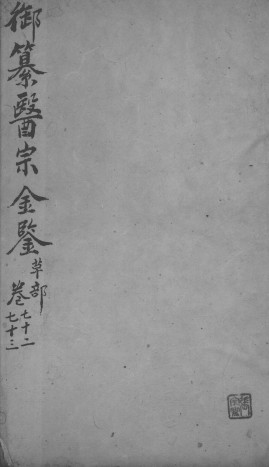 御纂醫宗金鑒
草部
卷七十二
七十三